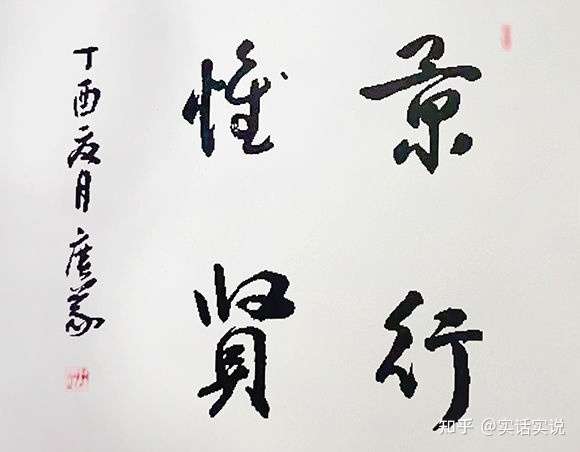 景行
惟賢
丁酉夏月
知乎 @实话实说